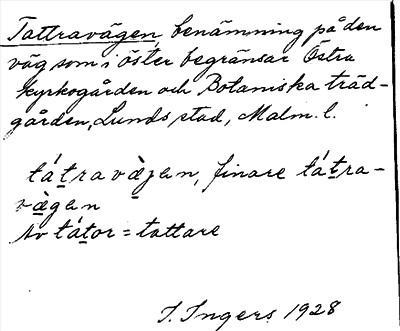 Tattravägen, benämning på den
väg som i öster begränsar Östra
kyrkogården och Botaniska träd-
gården, Lunds stad, Malm. l.
tát̲ravä̀gen, finare tát̲ra-
vä̀gan
Av tát̲or = tattare
I. Ingers 1928